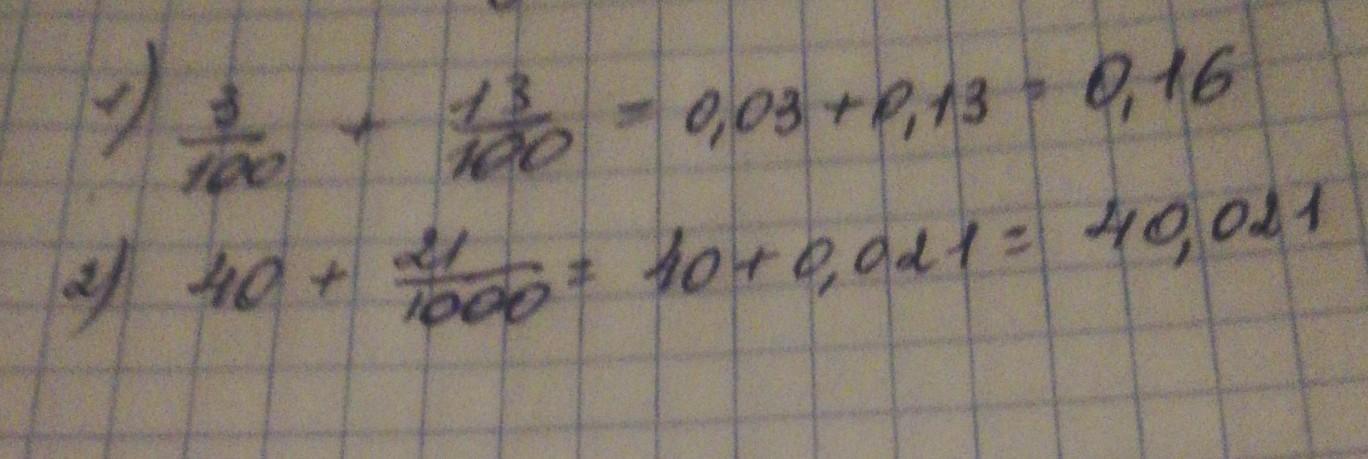 1) 3/100 + 13/100 = 0,03 + 0,13 = 0,16
2) 40 + 21/1000 = 40 + 0,021 = 40,021